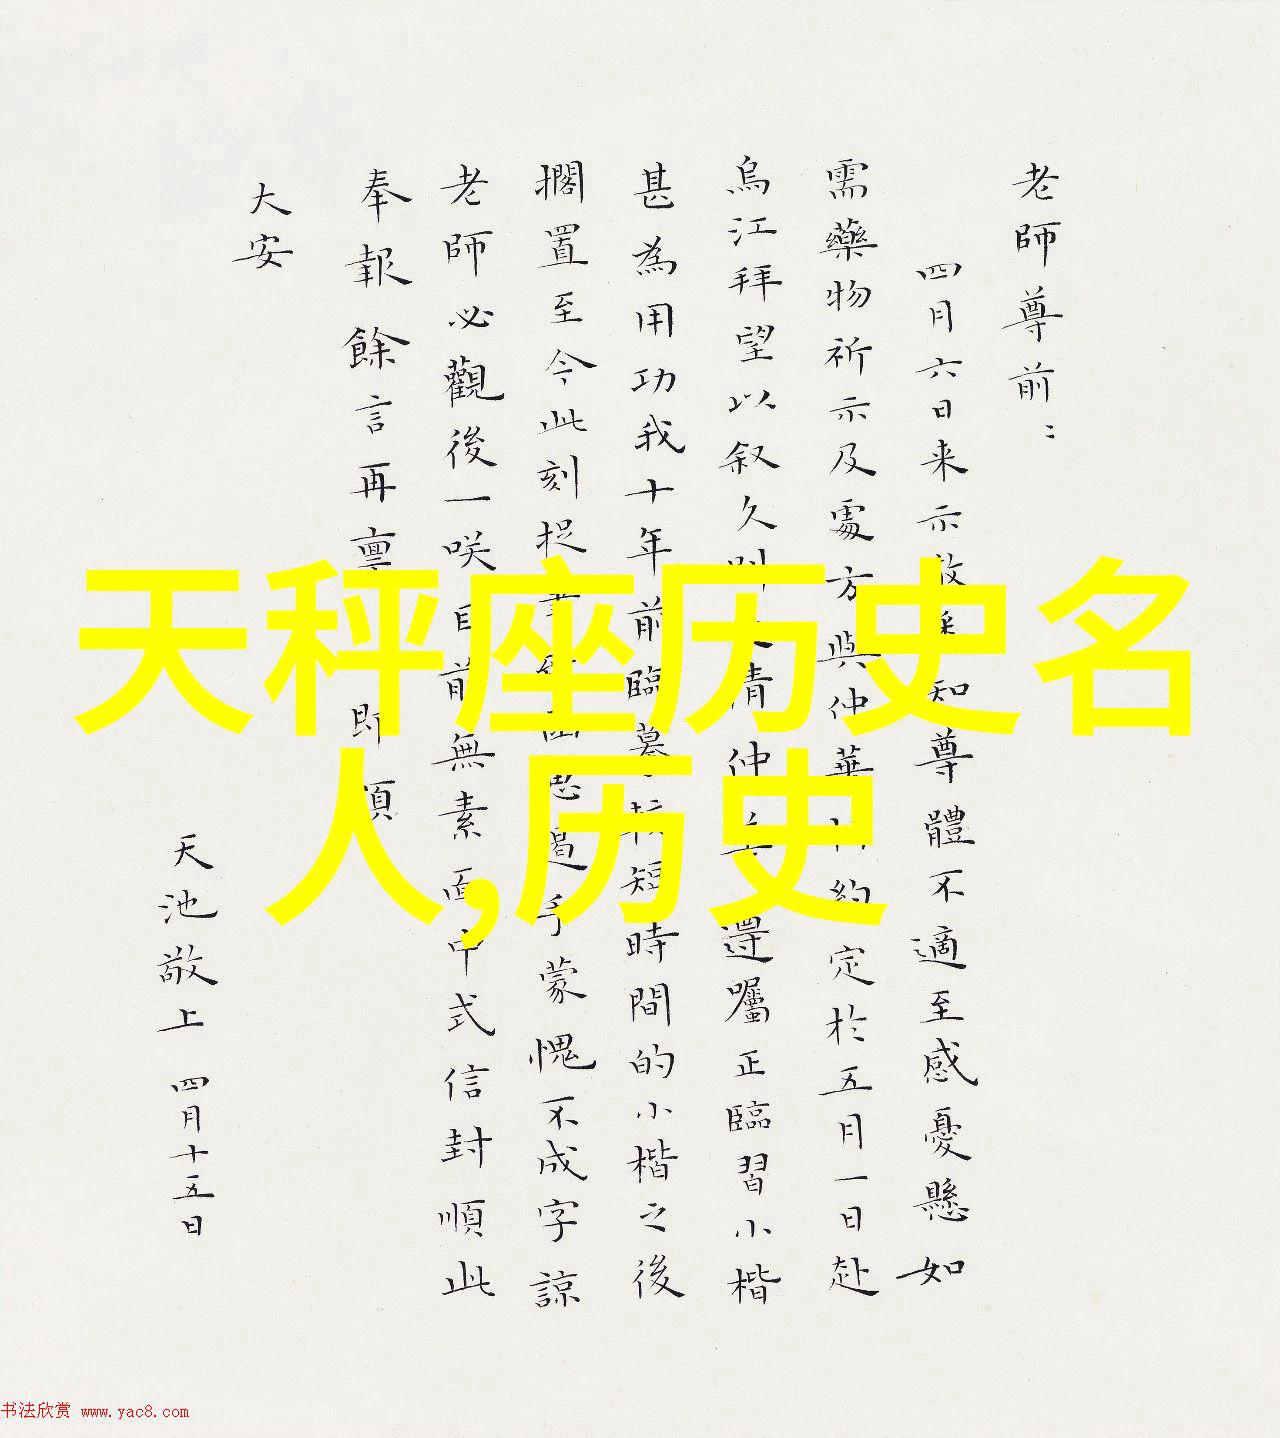 老師尊前：
四月六日来示敬悉知尊體不適至感憂懸如
需藥物祈示及處方與仲華約定於五月一日赴
烏江拜望以叙久别之情仲還囑正臨習小楷
甚為用功我十年前臨摹較短時間的小楷之後
擱置至今此刻捉筆遏手蒙愧不成字諒
老師必觀後一咲目前無素面中式信封順此
奉報餘言再稟即頌
大安
天池敬上 四月十五日
天秤座历史名
人,历史
书法欣赏 www.yac8.com